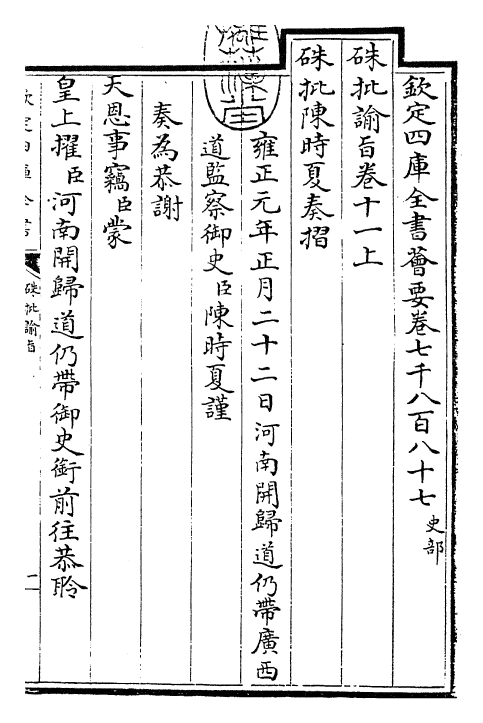 欽定四庫全書薈要卷七千八百八十七 史部
硃批諭旨卷十一上
硃批陳時夏奏摺
雍正元年正月二十二日河南開歸道仍帶廣西
道監察御史臣陳時夏謹
奏為恭謝
天恩事竊臣蒙
皇上擢臣河南開歸道仍帶御史銜前往恭聆
硃批諭旨